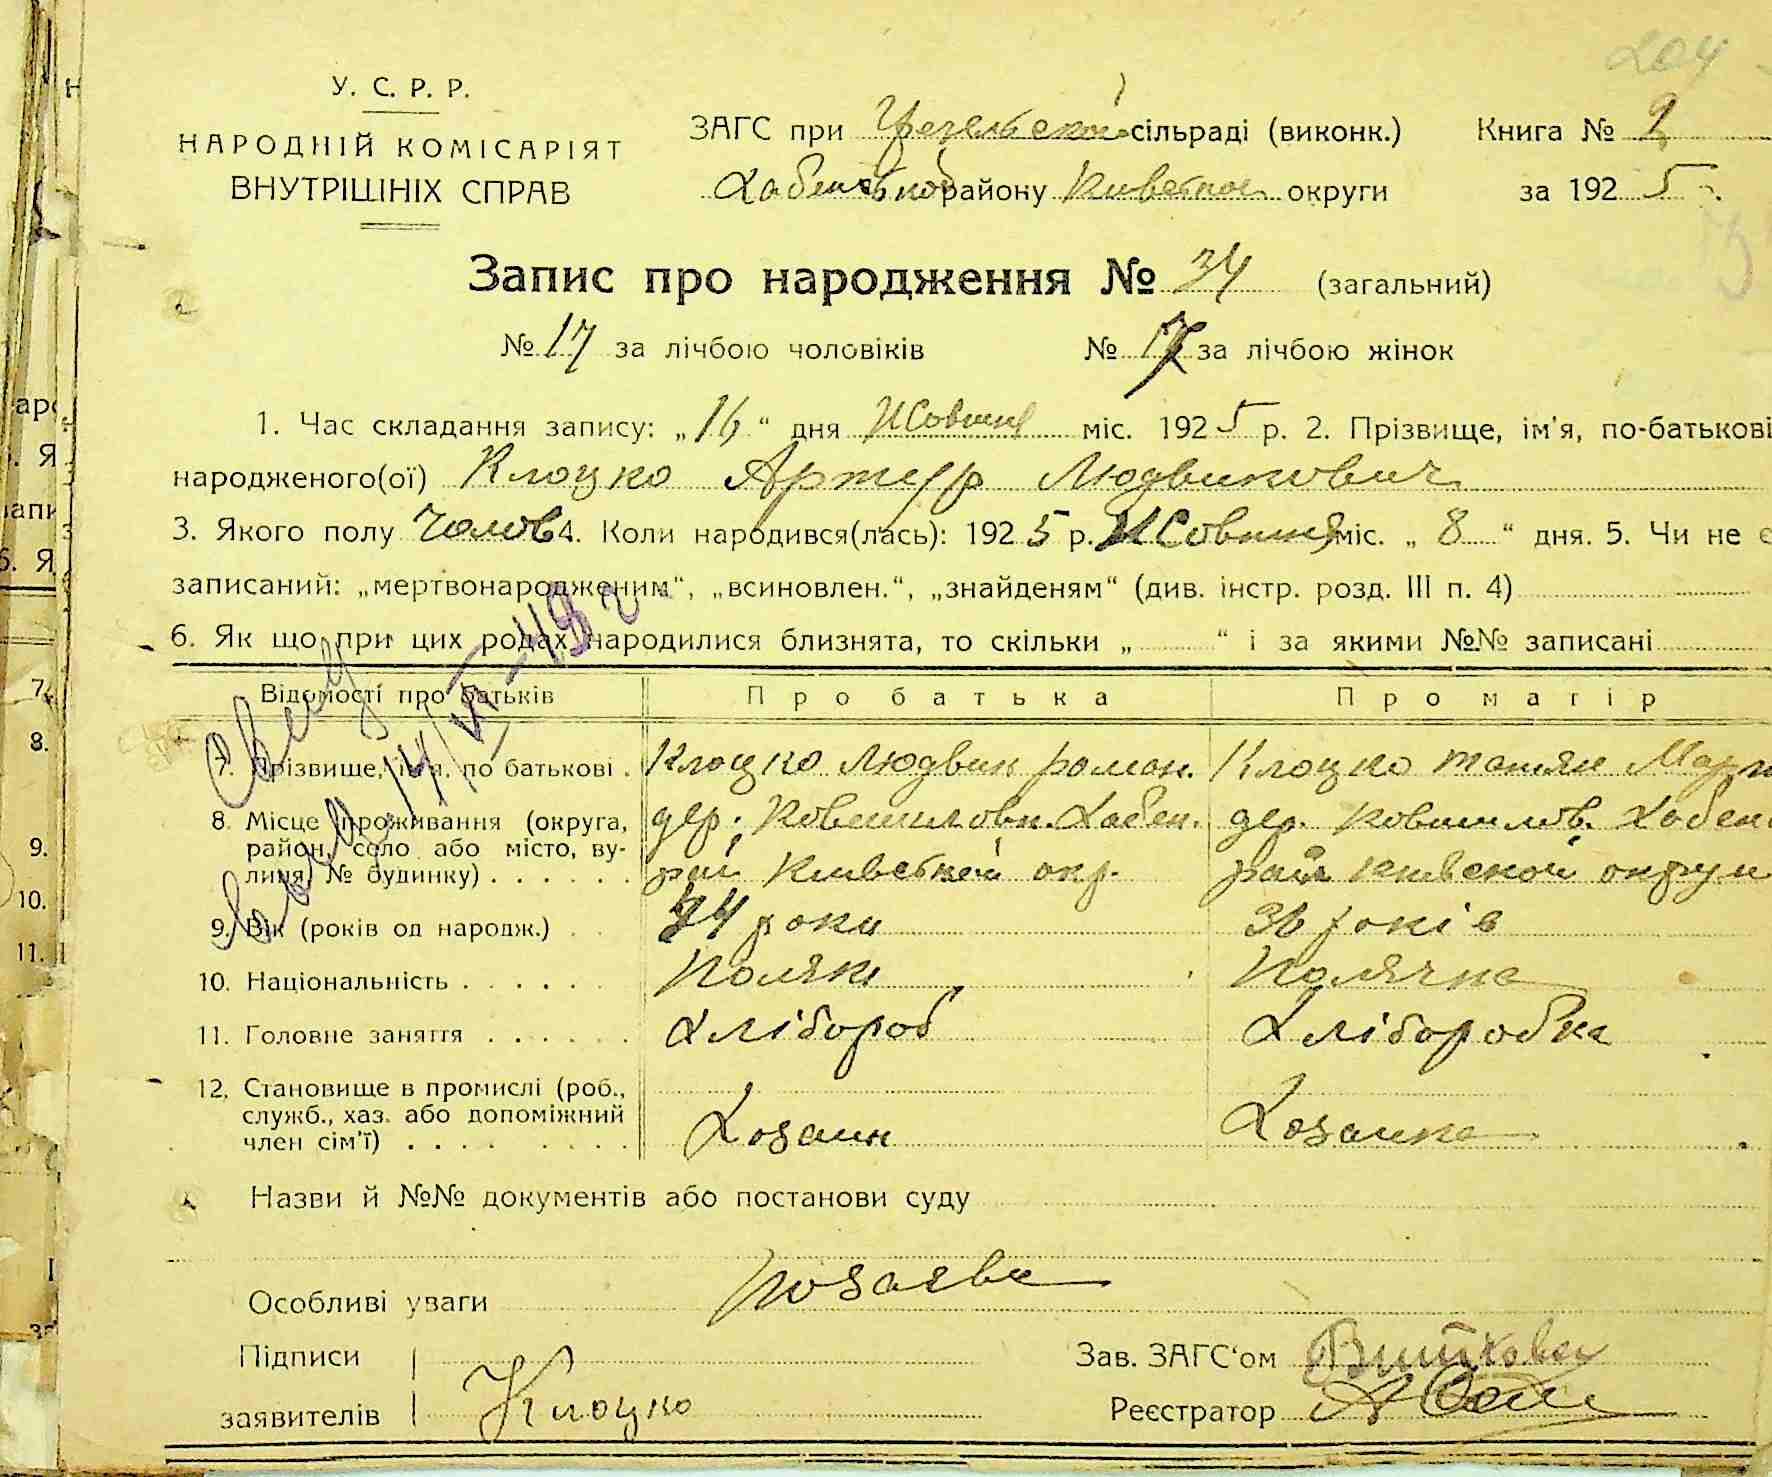 204
У. С. Р. Р.
НАРОДНІЙ КОМІСАРІЯТ
ВНУТРІШНІХ СПРАВ
ЗАГС при сільраді (виконк.) Книга № 2
Хабенськой району Киевской округи за 1925 р.
Запис про народження № 34 (загальний)
№ 17 за лічбою чоловіків № 17 за лічбою жінок
1. Час складання запису: „16“ дня Жовтня міс. 1925 р. 2. Прізвище, ім'я, по-батькові
народженого(ої) Клоцко Артур Людвикович
3. Якого полу Чолов 4. Коли народився(лась): 1925 р. Жовтня міс. „ 8 “ дня. 5. Чи не є
записаний: „мертвонародженим“, „всиновлен.“, „знайденям“ (див. інстр. розд. III п. 4)
6. Як що при цих родах народилися близнята, то скільки „ “ і за якими №№ записані
Відомості про батьків Про батька Про матір
7. Прізвище, ім'я, по батькові . Клоцко Людвик роман. Клоцко татян
8. Місце проживання (округа, дер. Хабен. дер. Хабен.
район, село або місто, ву-
лиця, № будинку) . . . . . . рай Киевской окр. рай киевской округи
9. Вік (років од народж.) . . 44 роки 36 років
10. Національність . . . . . . Поляк Полячка
11. Головне заняття . . . . . . Хлібороб Хліборобка
12. Становище в промислі (роб.,
служб., хаз. або допоміжний Хозаин Хозаика
член сім'ї) . . . . . . . .
Назви й №№ документів або постанови суду
Особливі уваги
Підписи Зав. ЗАГС'ом
заявителів Клоцко Реєстратор
14/VI-49 г